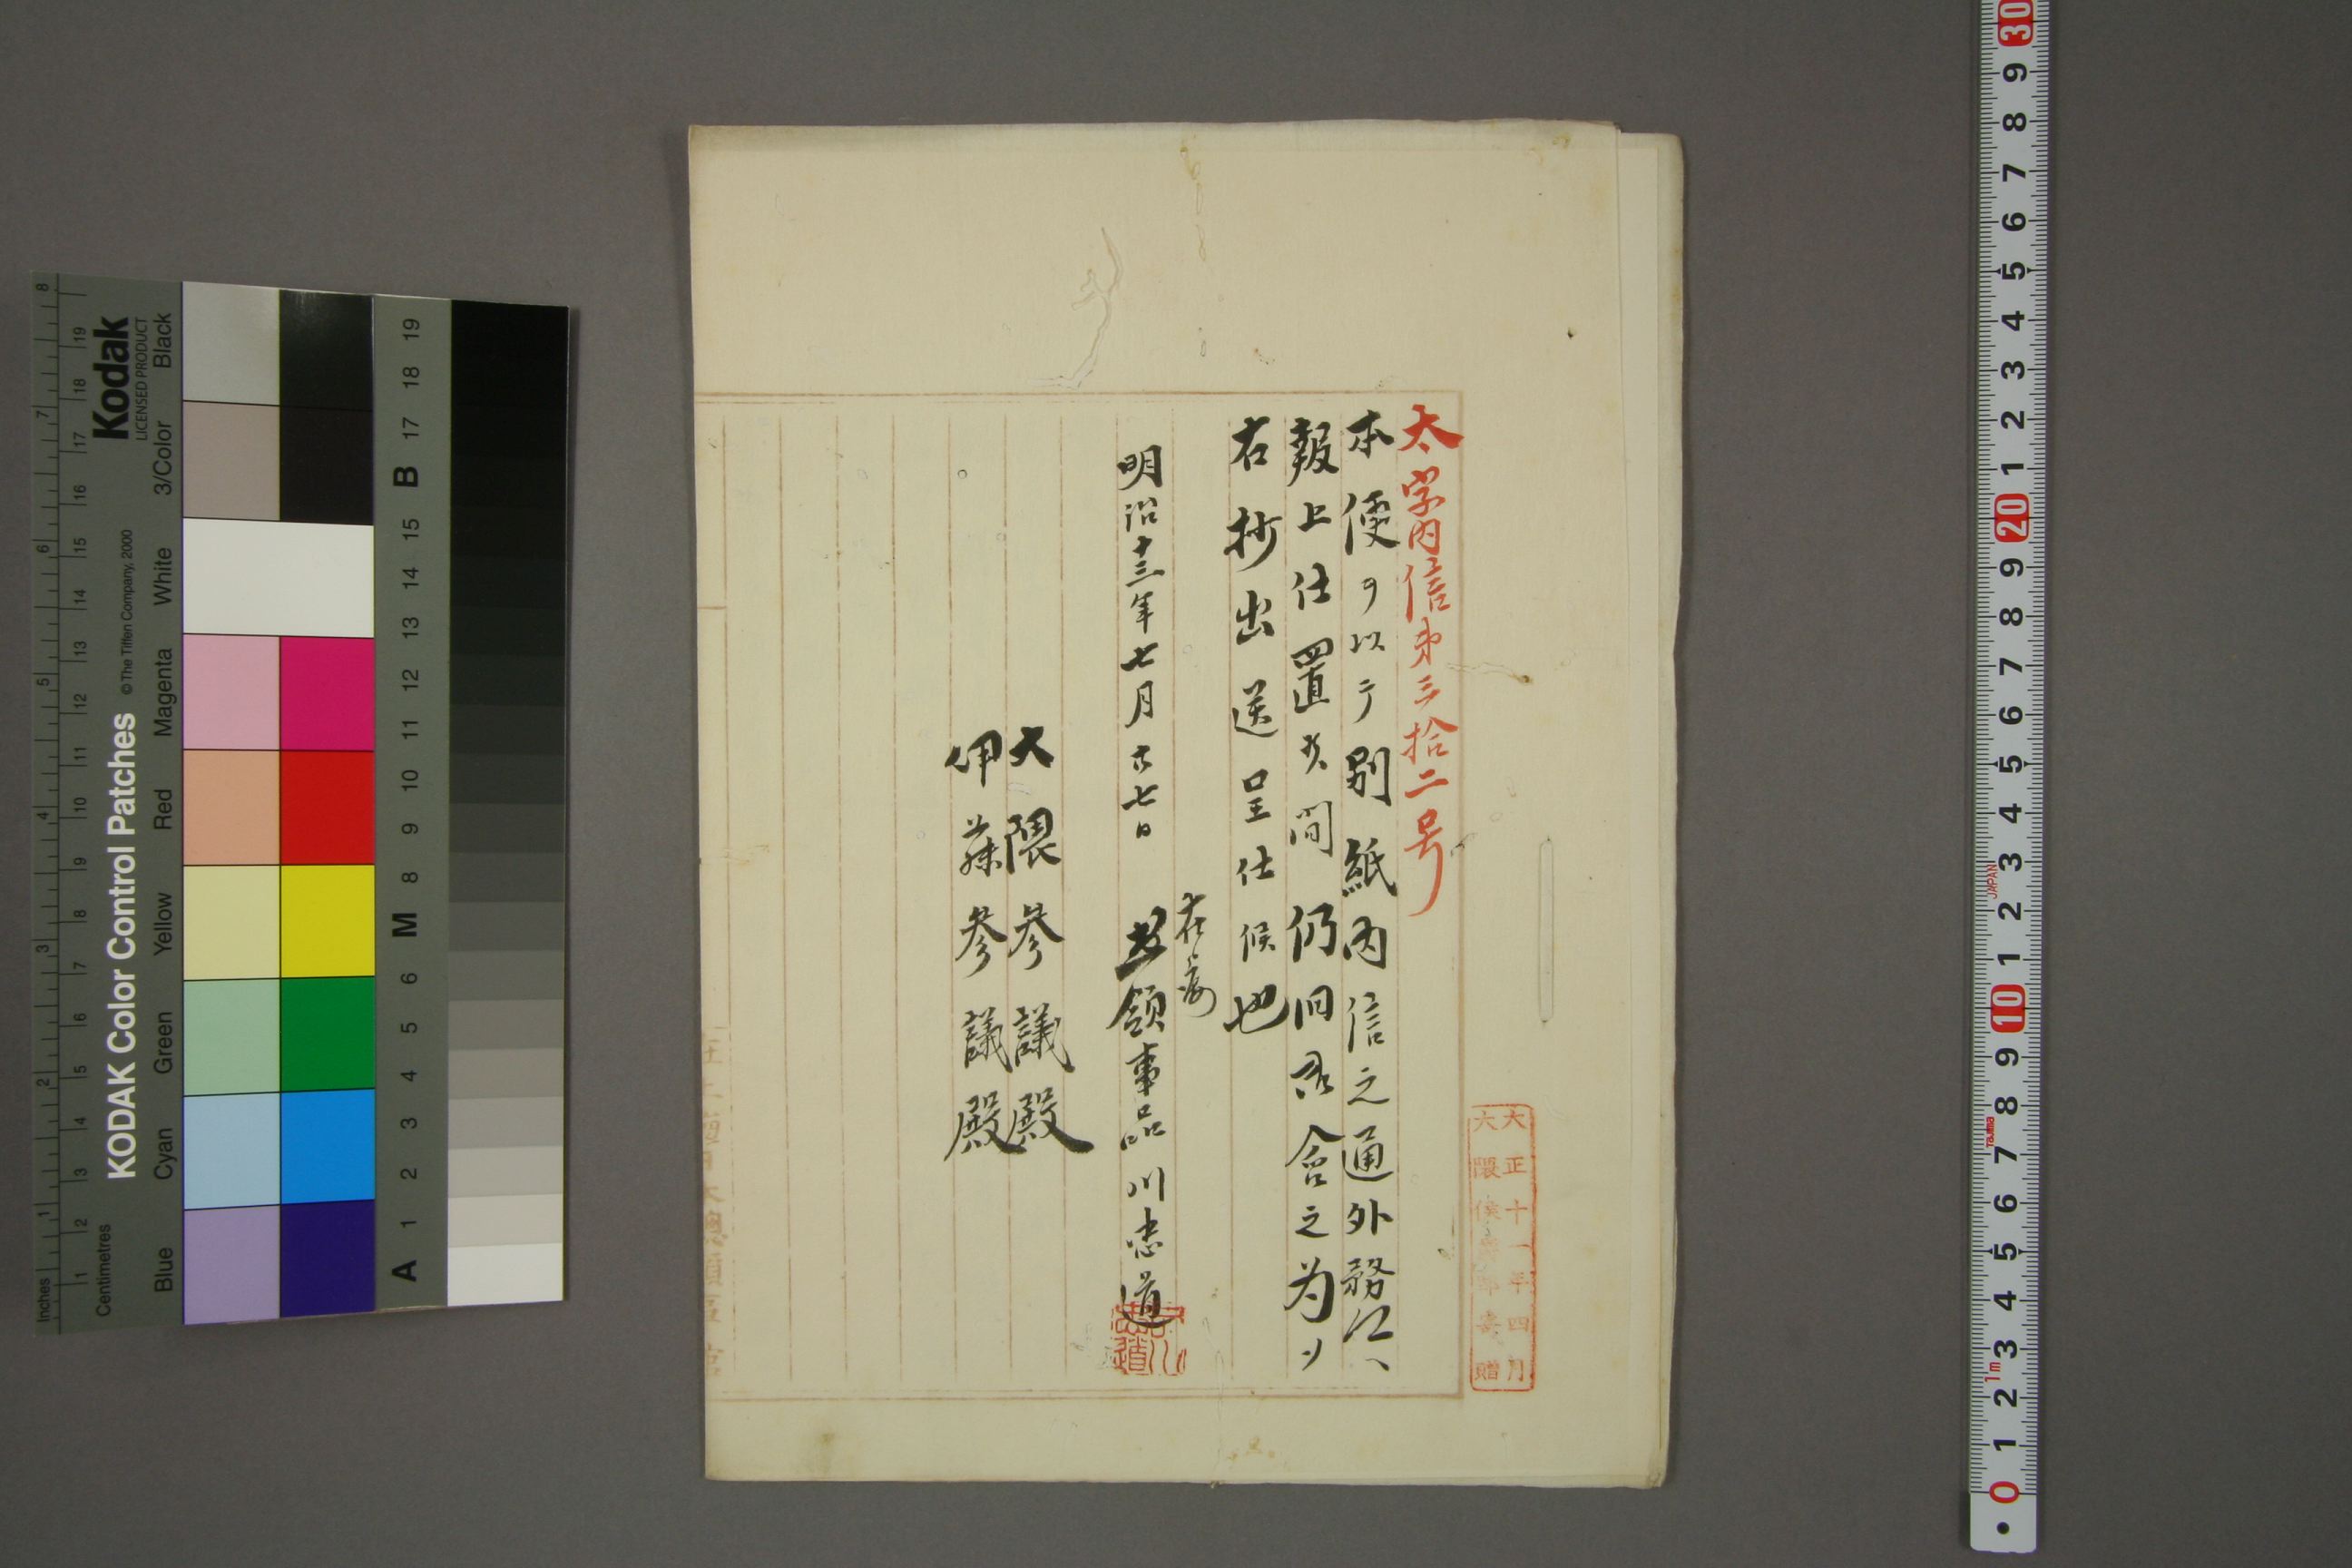 太字内信第三拾二号
本便ヲ以テ別紙内信之通外務江
報上仕置候間仍旧御含之為メ
右抄出送呈仕候也
在滬
明治十三年七月廿七日 総領事品川忠道
大隈参議殿
伊藤参議殿
大正十一年四月
大隈侯爵邸寄贈
品川忠道
KODAK Color Control Patches
©The Tiffen Company, 2000
Kodak
LICENSED PRODUCT
Inches 1 2 3 4 5 6 7 8
Centimetres 1 2 3 4 5 6 7 8 9 10 11 12 13 14 15 16 17 18 19
Blue Cyan Green Yellow Red Magenta White 3/Color Black
A 1 2 3 4 5 6 M 8 9 10 11 12 13 14 15 B 17 18 19
0 1 2 3 4 5 6 7 8 9 10 1 2 3 4 5 6 7 8 9 20 1 2 3 4 5 6 7 8 9 30
1m
Tajima
JAPAN